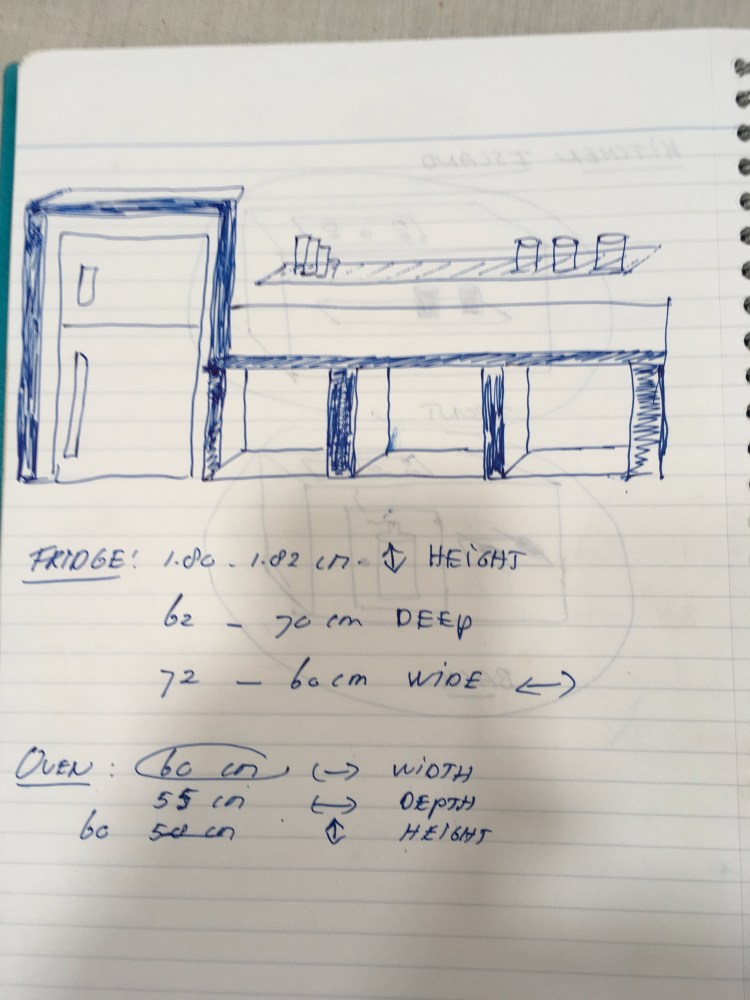 FRIDGE: 1.80 - 1.82 cm. ↕ HEIGHT
62 - 70 cm DEEP
72 - 60 cm WIDE ↔
OVEN: 60 cm ↔ WIDTH
55 cm ↔ DEPTH
60 50 cm ↕ HEIGHT
KITCHEN ISLAND